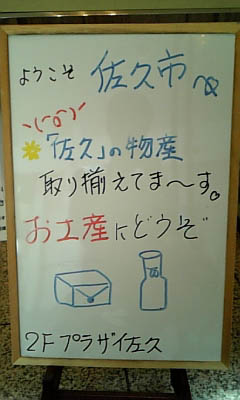 ようこそ 佐久市へ
\(^o^)/
「佐久」の物産
取り揃えてま〜す。
お土産にどうぞ
2F プラザイ佐久